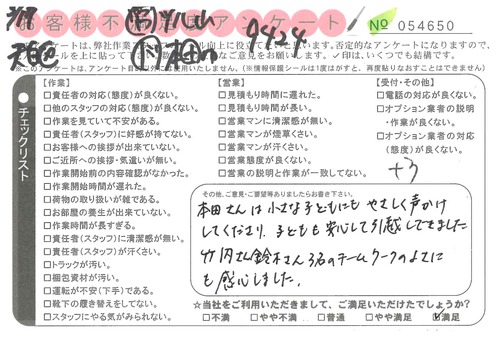 3/18
お客様不満足度アンケート
№ 054650
9424
アンケートは、弊社作業
ール向上に役立て
と思います。否定的なアンケートになりますので、
を上に貼って
ご意見をお願いします。✓印は、いくつでも結構です。
※このアンケートは、アンケート目
いたしません。（※情報保護シールは1度はがすと、再度貼りなおすことはできません）
チェックリスト
【作業】
□責任者の対応（態度）が良くない。
□他のスタッフの対応（態度）が良くない。
□作業を見ていて不安がある。
□責任者（スタッフ）に好感が持てない。
□お客様への挨拶が出来ていない。
□ご近所への挨拶・気遣いが無い。
□作業開始前の内容確認がなかった。
□作業開始時間が遅れた。
□荷物の取り扱いが雑である。
□お部屋の養生が出来ていない。
□作業時間が長すぎる。
□責任者（スタッフ）に清潔感が無い。
□責任者（スタッフ）が汗くさい。
□トラックが汚い。
□梱包資材が汚い。
□運転が不安（下手）である。
□靴下の履き替えをしてない。
□スタッフにやる気がみられない。
【営業】
□見積もり時間に遅れた。
□見積もり時間が長い。
□営業マンに清潔感が無い。
□営業マンが煙草くさい。
□営業マンが汗くさい。
□営業態度が良くない。
□営業の説明と作業が一致してない。
【受付・その他】
□電話の対応が良くない。
□オプション業者の説明
・作業が良くない。
□オプション業者の対応
（態度）が良くない。
+3
その他、ご意見・ご要望等ありましたらお書き下さい。
本田さんは小さな子どもにも やさしく声かけ
してくださり、子どもも安心して引越しできました
竹内さん鈴木さん3名のチームワークのよさに
も感心しました。
☆当社をご利用いただきまして、ご満足いただけたでしょうか？
□不満 □やや不満 □普通 □やや満足 ☑満足